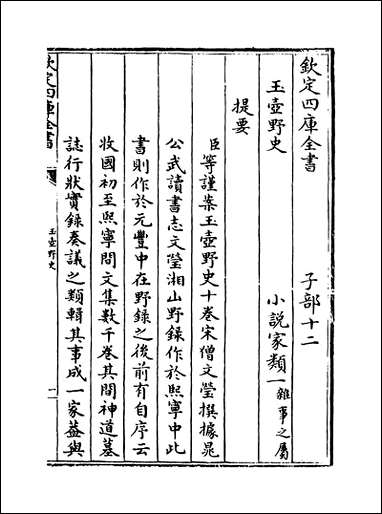 欽定四庫全書
子部十二
玉壺野史
小說家類一雜事之屬
提要
臣等謹案玉壺野史十卷宋僧文瑩撰據晁
公武讀書志文瑩湘山野錄作於熙寧中此
書則作於元豐中在野錄之後前有自序云
收國初至熙寧間文集數千卷其間神道墓
誌行狀實錄奏議之類輯其事成一家葢與
欽定四庫全書
玉壺野史
一